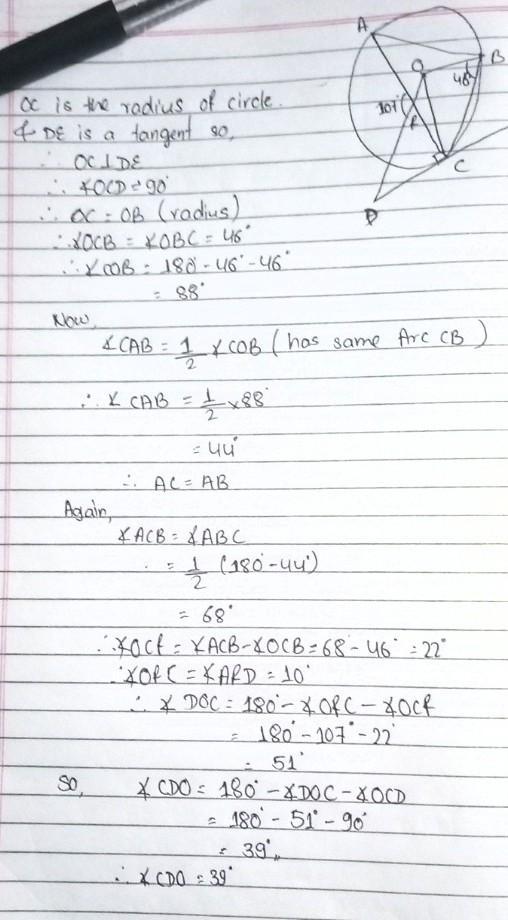 A
B
O
46°
107°
F
C
D
OC is the radius of circle.
& DE is a tangent so,
∴ OC⊥DE
∴ ∡OCD = 90°
∴ OC = OB (radius)
∴ ∡OCB = ∡OBC = 46°
∴ ∡COB = 180° - 46° - 46°
= 88°
Now,
∡CAB = 1/2 ∡COB (has same Arc CB)
∴ ∡CAB = 1/2 × 88°
= 44°
∴ AC = AB
Again,
∡ACB = ∡ABC
= 1/2 (180° - 44°)
= 68°
∴ ∡OCF = ∡ACB - ∡OCB = 68 - 46° = 22°
∴ ∡OFC = ∡AFD = 10°
∴ ∡DOC = 180° - ∡OFC - ∡OCF
= 180° - 107° - 22°
= 51°
So, ∡CDO = 180° - ∡DOC - ∡OCD
= 180° - 51° - 90°
= 39°,,
∴ ∡CDO = 39°